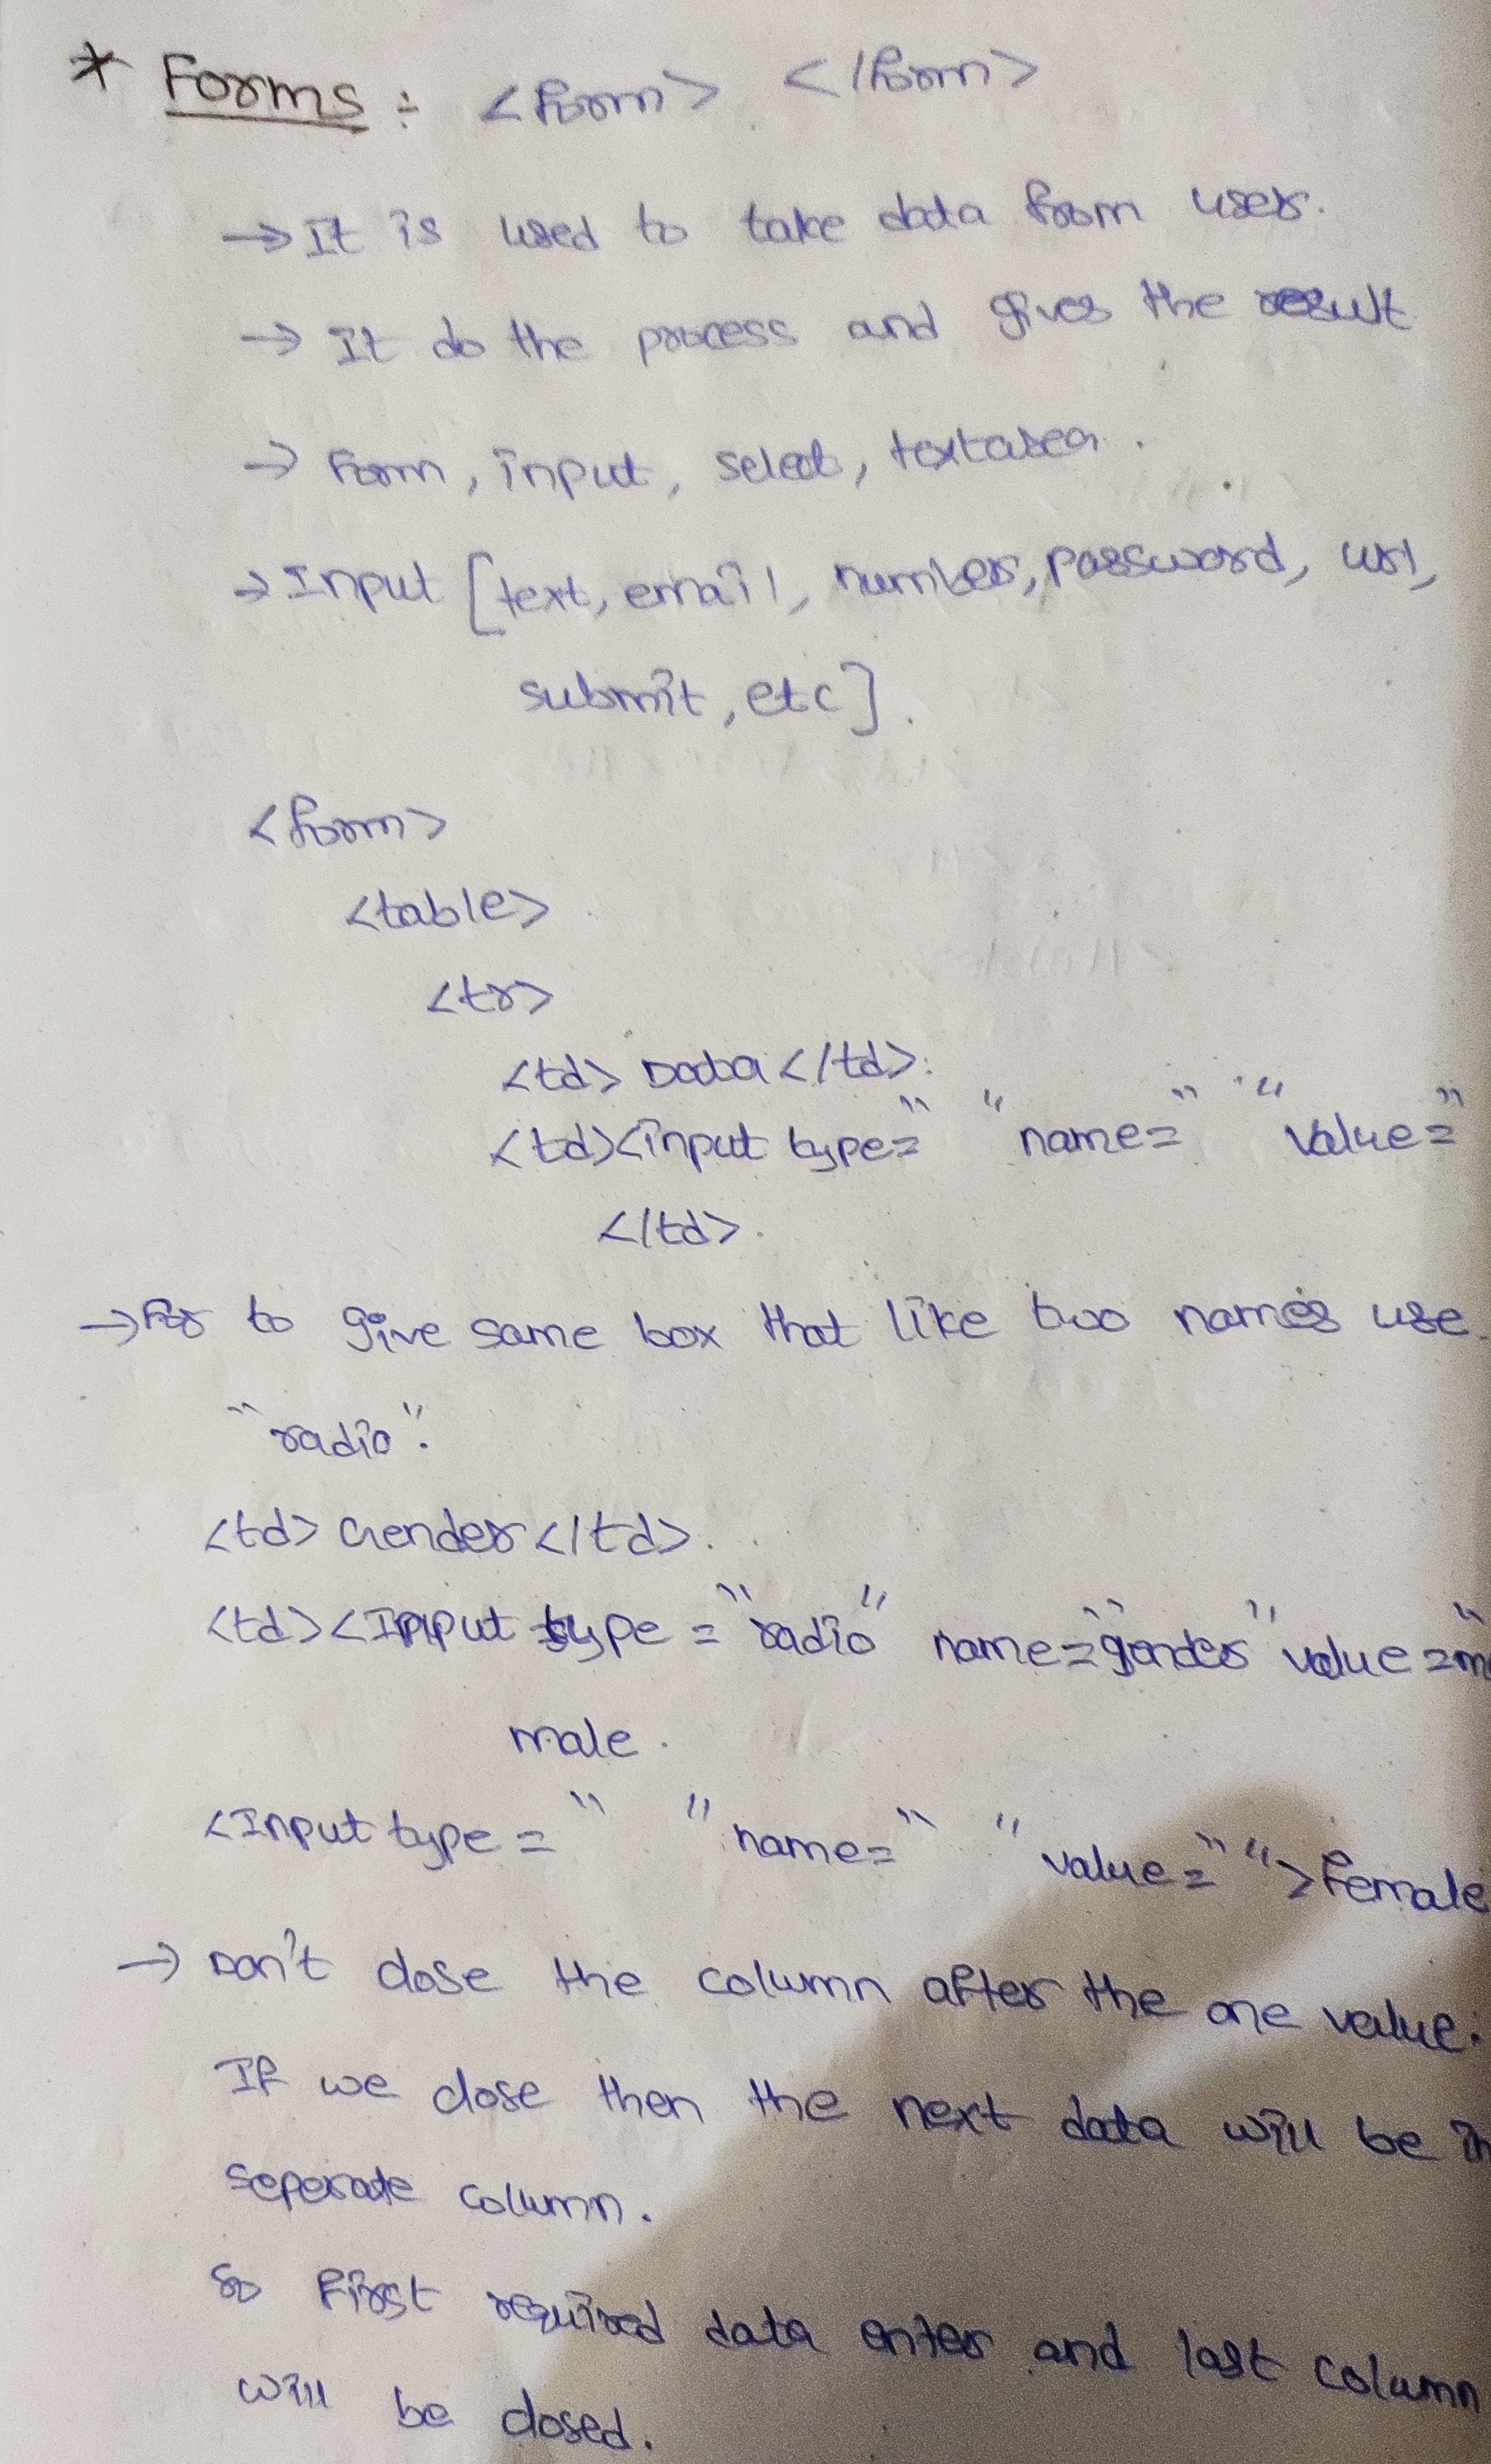 * Forms : <form> </form>
→ It is used to take data from user.
→ It do the process and gives the result
→ Form, input, select, textarea.
→ Input [text, email, number, password, url,
submit, etc].
<form>
<table>
<tr>
<td> Data </td>.
<td><input type=" " name=" " value="
</td>.
→ For to give same box that like two names use
"radio".
<td> Gender </td>.
<td><Input type = "radio" name="gender" value="m
male.
<Input type = " " name=" " value=" "> Female
→ Don't close the column after the one value.
If we close then the next data will be in
seperate column.
So first required data enter and last column
will be closed.